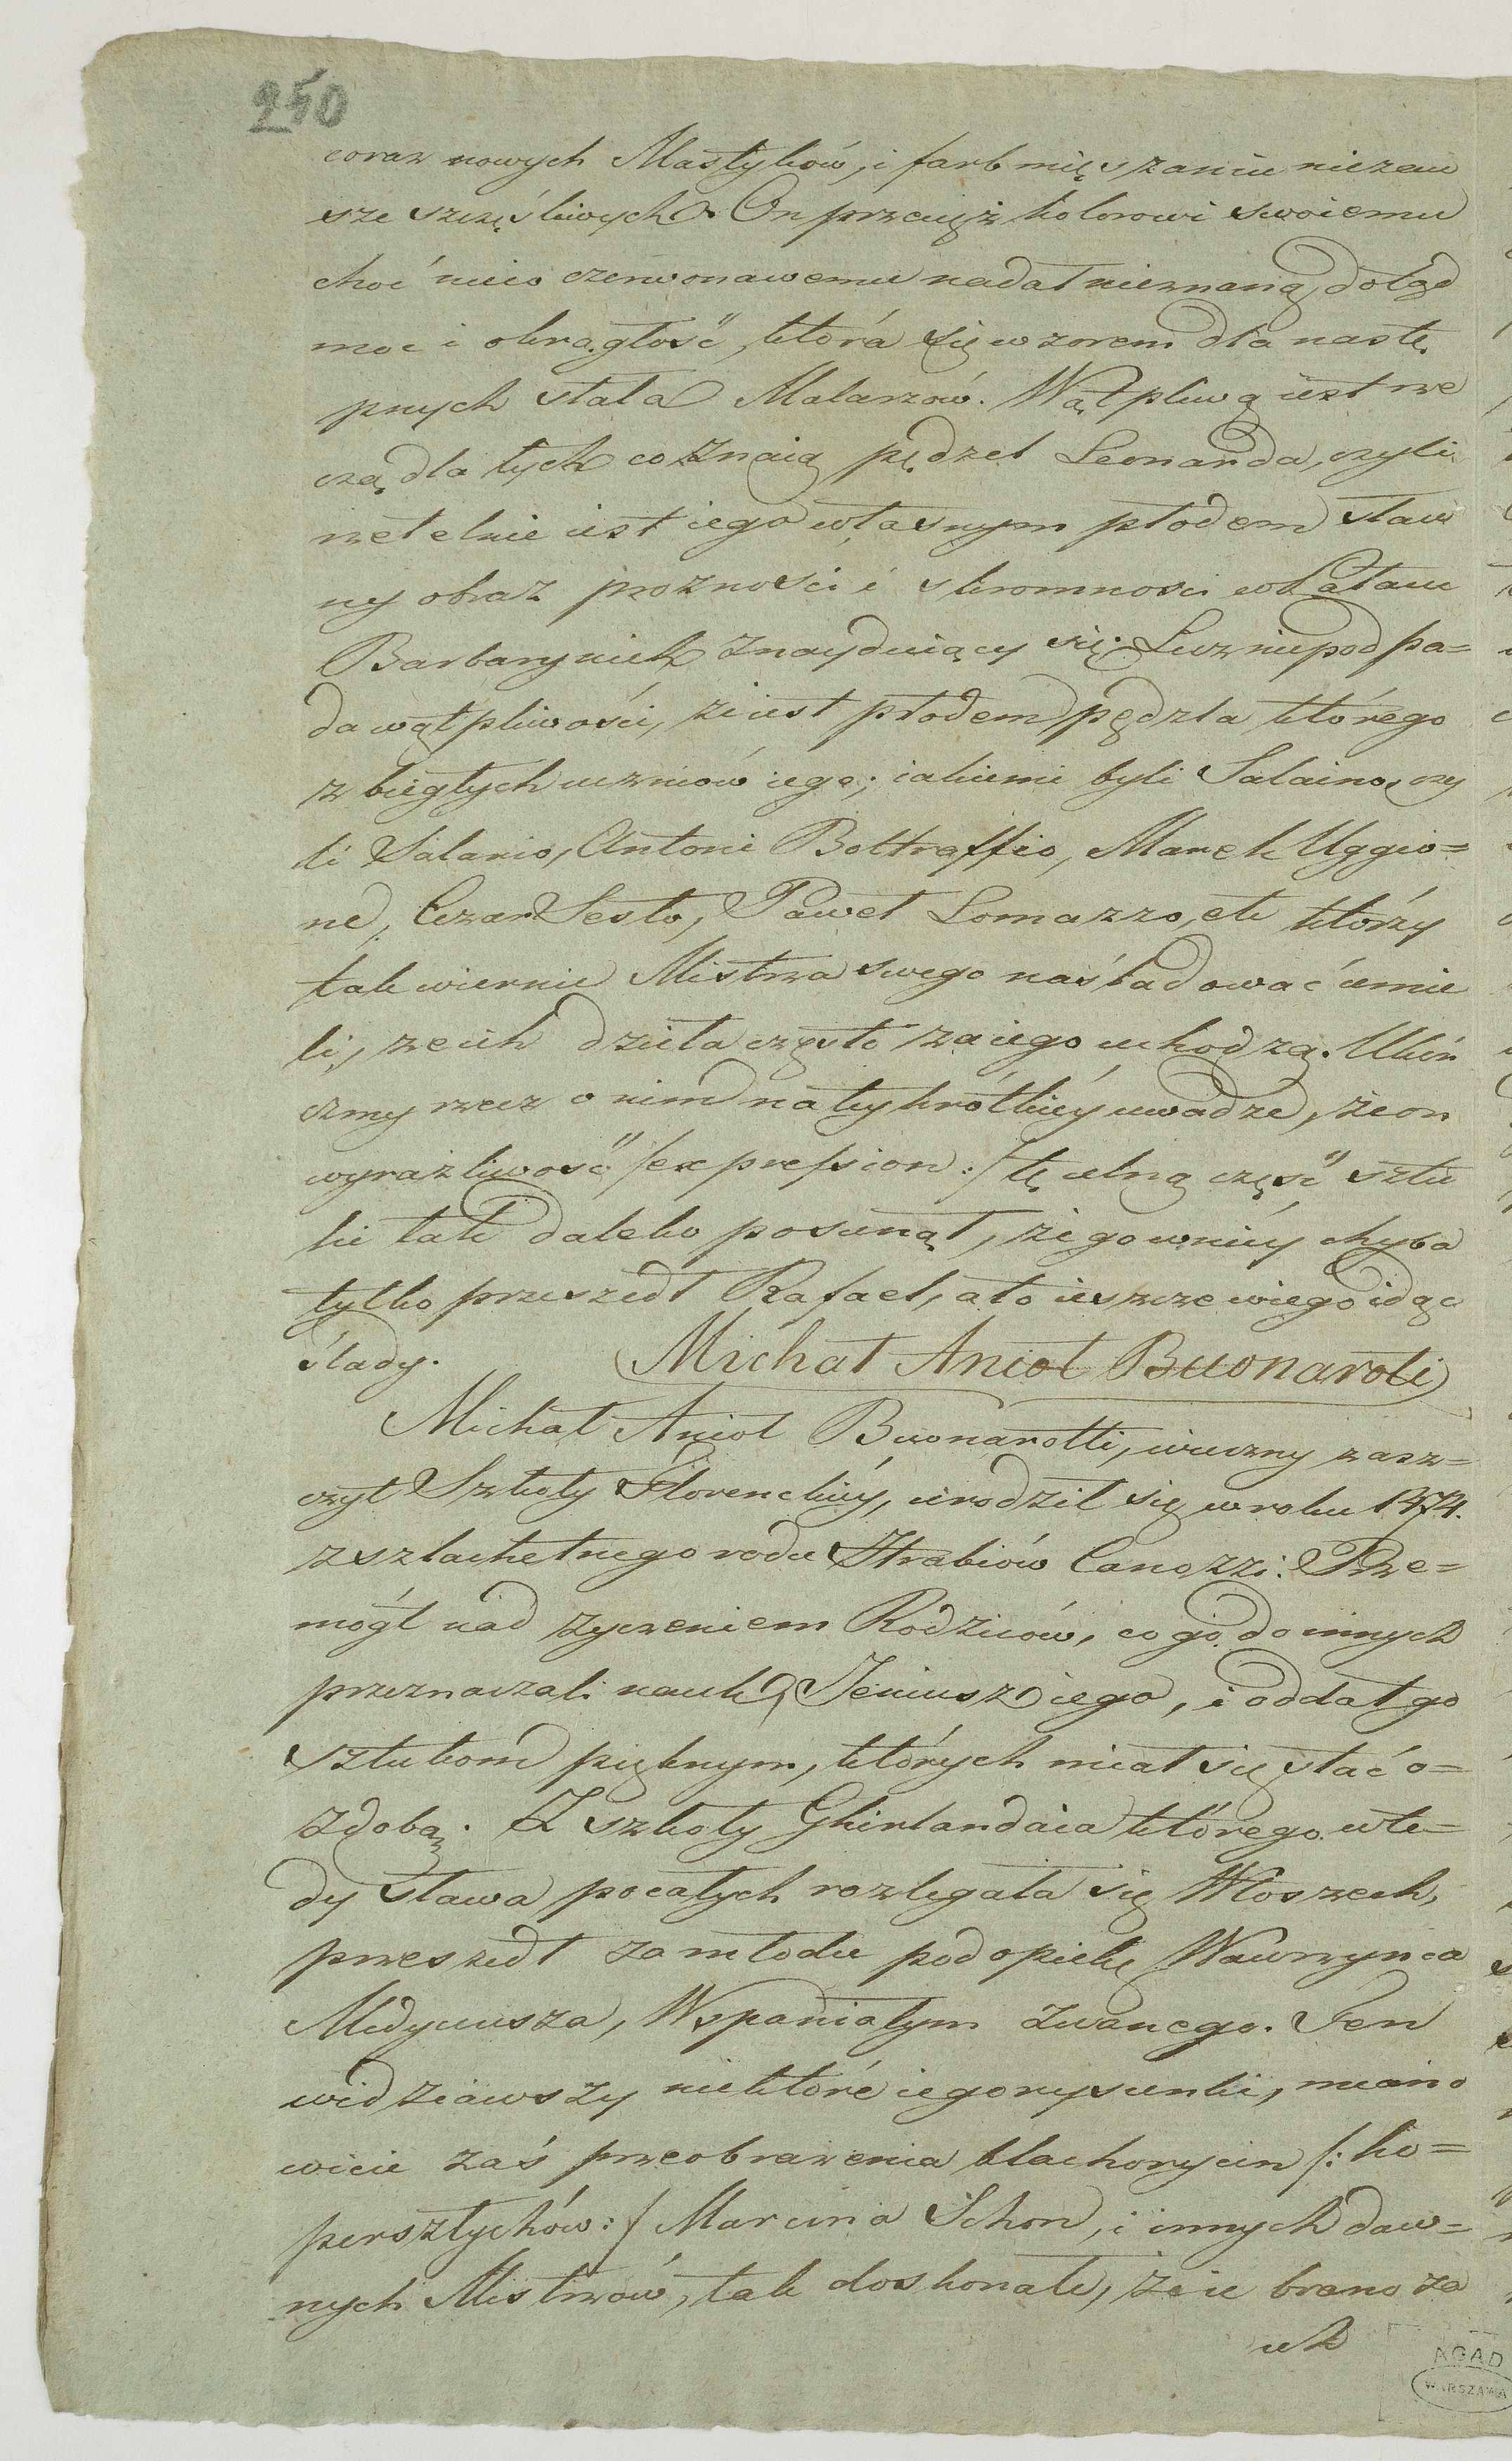 250
coraz nowych Mastyków, i farb mięszaniu niezaw
sze szczęśliwych. On przecięż kolorowi swoiemu
choć nieco czerwonawemu nadał nieznaną dotąd
moc i okrągłość, która się wzorem dla nastę,
pnych stała Malarzów. Wątpliwą iest rze
czą dla tych co znaią pędzel Leonarda, czyli
rzetelnie iest iego własnym płodem sław
ny obraz prożności i skromności w Pałacu
Barbarynich znayduiący się. Lecz niepodpa=
da wątpliwości, że iest płodem pędzla którego
z biegłych uczniów iego; iakiemi byli Salaino, czy
li Salario, Antoni Boltraffio, Marek Uggio=
ne, Cezar Sesto, Paweł Lomazzo, etc którzy
tak wiernie Mistrza swego naśladować umie
li, że ich dzieła często za iego uchodzą. Ukoń
czmy rzecz o nim na tey krótkiéy uwadze, że on
wyrazliwość /expression:/ tę celną część sztu
ki tak daleko posunął, że go w niéy chyba
tylko przeszedł Rafael, a to ieszcze w iego idąc
ślady.
Michał Anioł Buonaroti
Michał Anioł Buonarotti, wieczny zasz=
czyt Szkoły Florenckiéy, urodził się w roku 1474.
z szlachetnego rodu Hrabiów Canozzi: Prze=
mógł nad życzeniem Rodziców, co go do innych
przeznaczali nauk, Jeniusz iego, i oddał go
sztukom pięknym, których miał się stać o=
zdobą. Z szkoły Ghirlandaia którego wte=
dy sława po całych rozlegała się Włoszech,
przeszedł za młodu pod opiekę Wawrzynca
Medyceusza, Wspaniałym zwanego. Ten
widziawszy niektóré iego rysunki, miano
wicie zaś przeobrażenia blachorycin /: ko=
persztychów:/ Marcina Schon, i innych daw=
nych Mistrzów, tak doskonałe, że ie brano za
AGAD
WARSZAWA